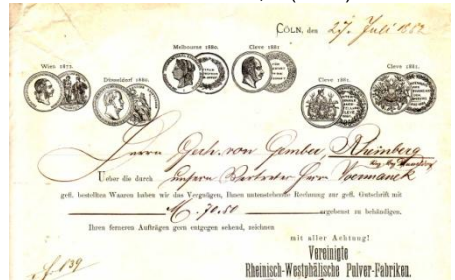 CÖLN, den 27. Juli 1882
Melbourne 1880. Cleve 1881.
Wien 1873. Düsseldorf 1880. Cleve 1881. Cleve 1881.
Herrn Gerh. von Gember Rheinberg
Ueber die durch unsern Vertreter Herrn
gefl. bestellten Waaren haben wir das Vergnügen, Ihnen untenstehende Rechnung zur gefl. Gutschrift mit
M. 70.80 ergebenst zu behändigen.
Ihren ferneren Aufträgen gern entgegen sehend, zeichnen
mit aller Achtung!
Vereinigte
Rheinisch-Westphälische Pulver-Fabriken.
139